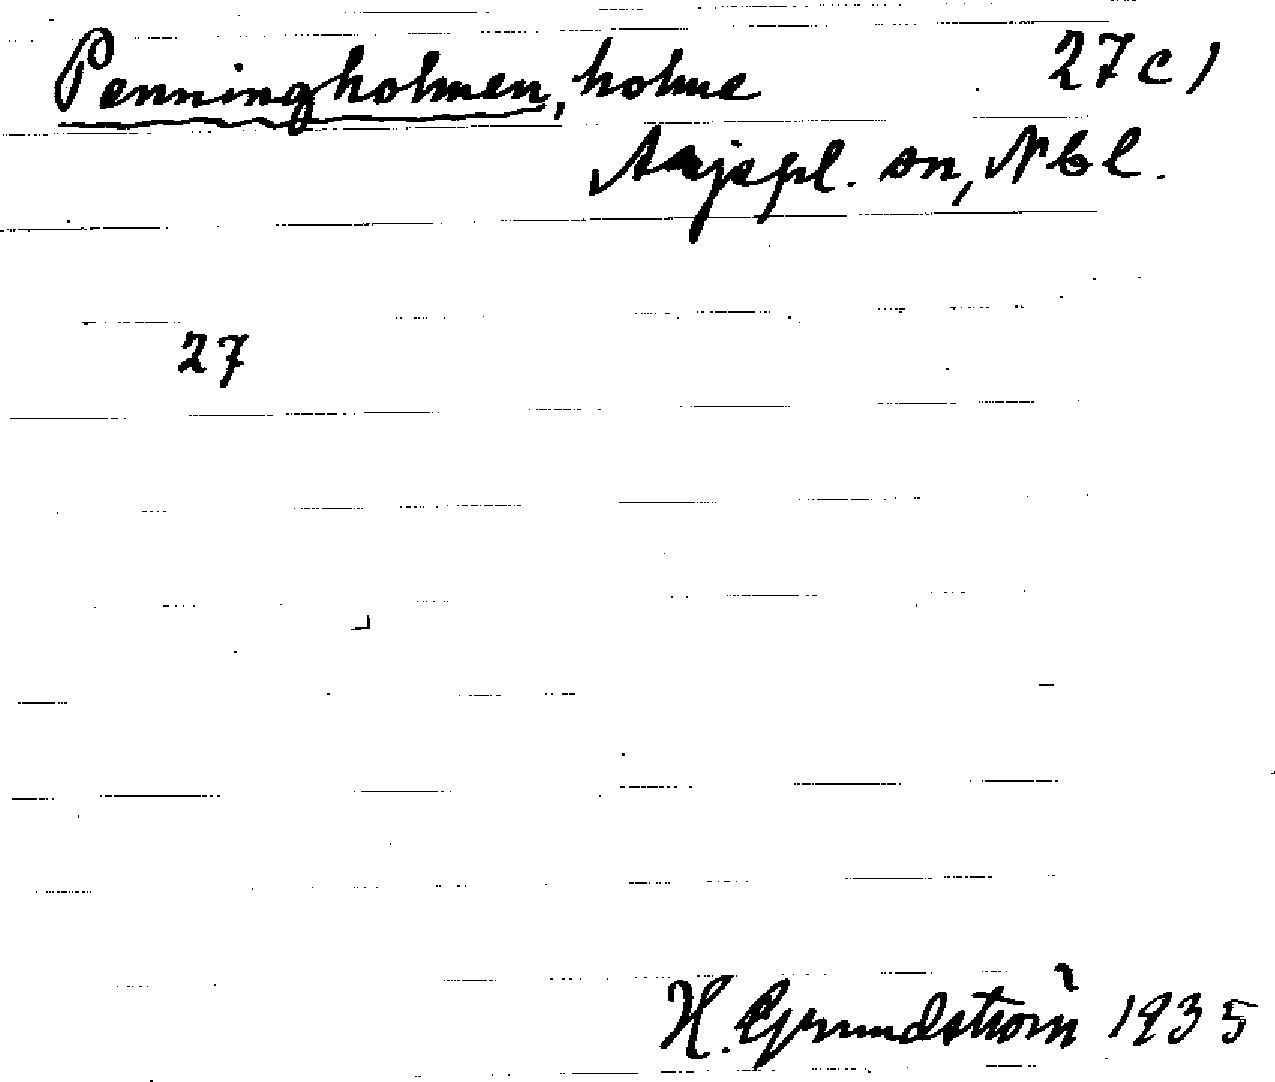 Penningholmen, holme 27 c)
Arjepl. sn, Nbl.
27
H. Grundström 1935